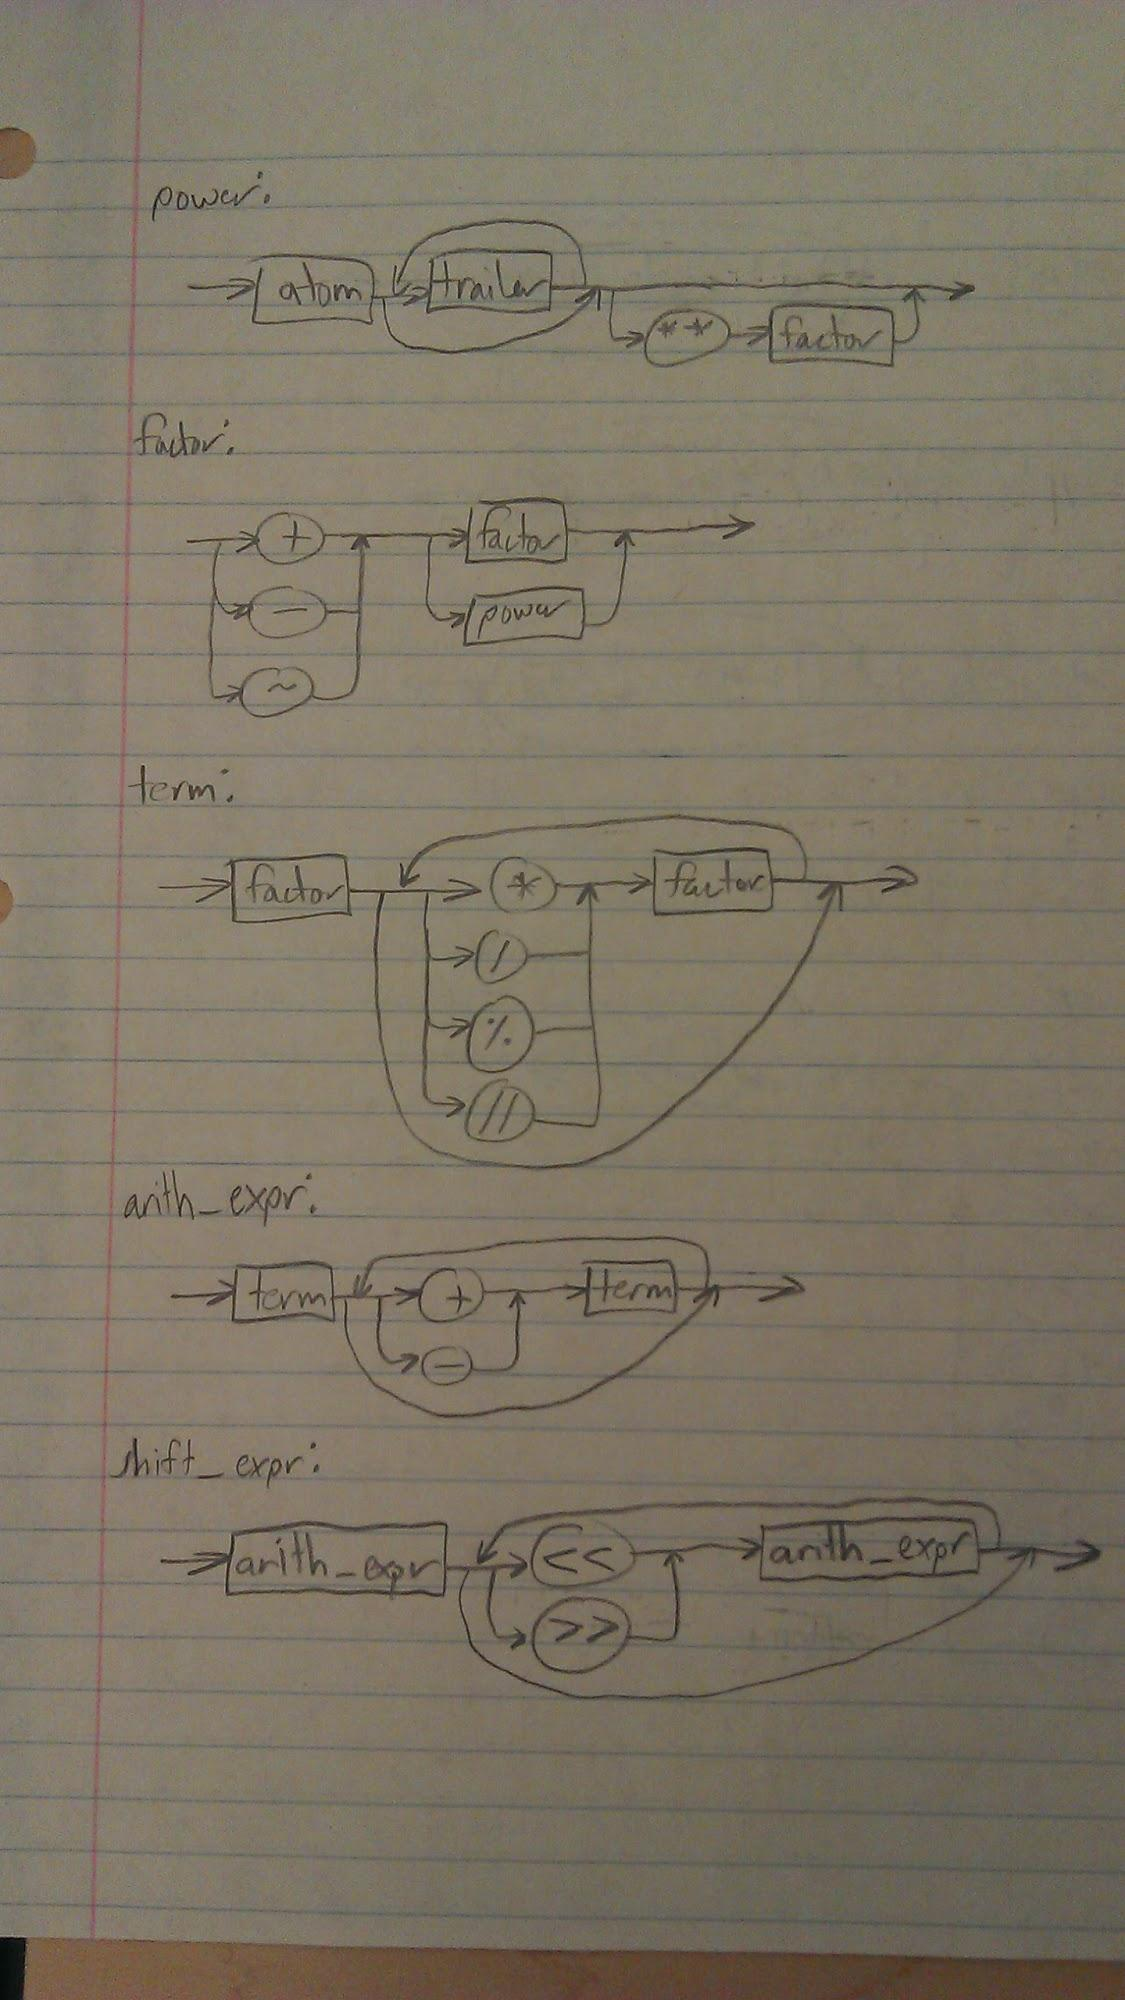 power:
atom trailer
** factor
factor:
+ factor
- power
~
term:
factor * factor
/
%
//
arith_expr:
term + term
-
shift_expr:
arith_expr << arith_expr
>>